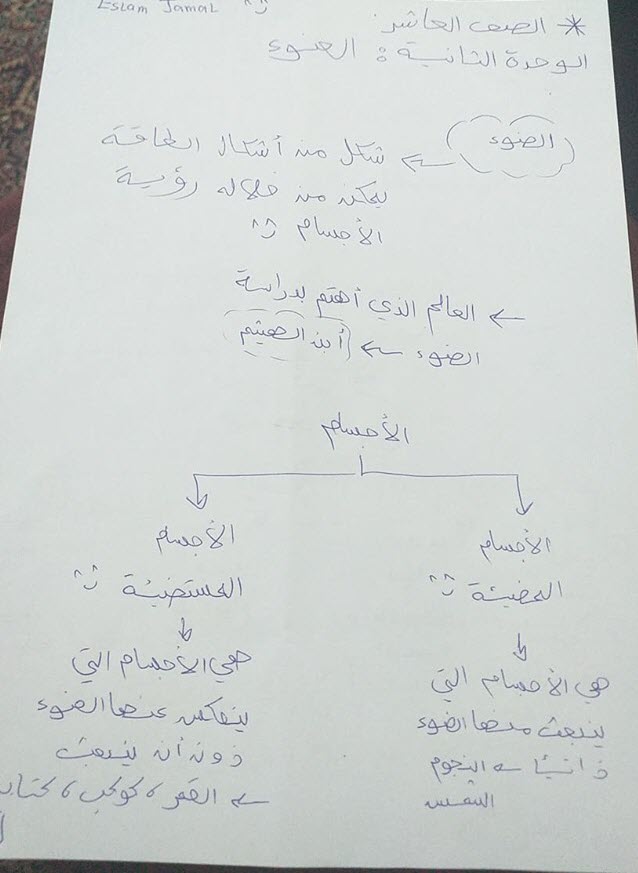 Eslam Jamal
* الصف العاشر
الوحدة الثانية : الضوء
الضوء ← شكل من أشكال الطاقة
يمكن من خلاله رؤية
الأجسام
← العالم الذي أهتم بدراسة
الضوء ← أبن الهيثم
الأجسام
الأجسام
المضيئة
هي الأجسام التي
ينبعث منها الضوء
ذاتيًا ← النجوم
الشمس
الأجسام
المستضيئة
هي الأجسام التي
ينعكس عنها الضوء
دون أن ينبعث
← القمر ، كوكب ، كتاب